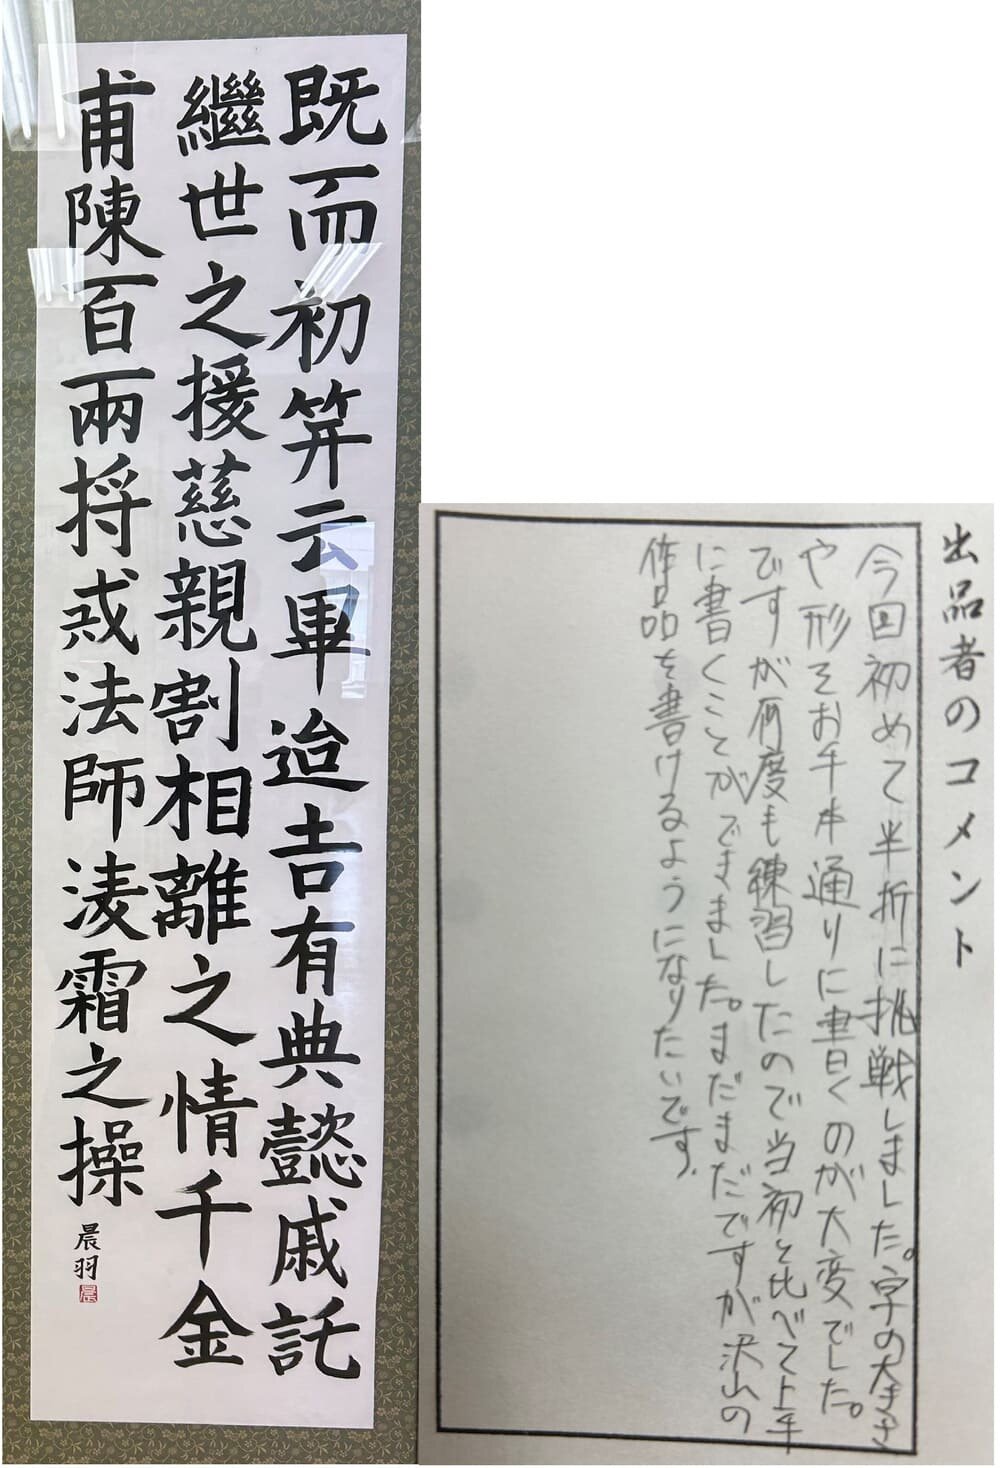 既而初笄云畢迨吉有典懿戚託
繼世之援慈親割相離之情千金
甫陳百兩将戒法師淩霜之操
晨羽
晨
出品者のコメント
今回初めて半折に挑戦しました。字の大きさ
や形をお手本通りに書くのが大変でした。
ですが何度も練習したので当初と比べて上手
に書くことができました。まだまだですが沢山の
作品を書けるようになりたいです。